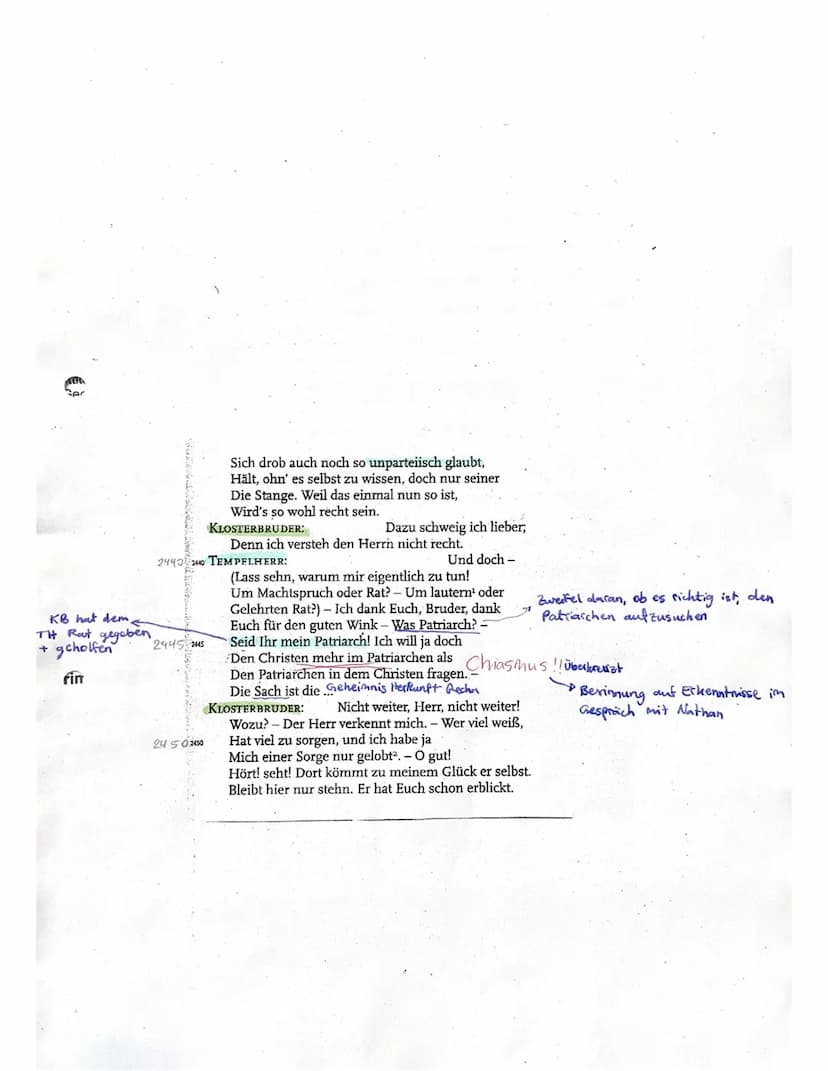 Sich drob auch noch so unparteiisch glaubt,
Hält, ohn' es selbst zu wissen, doch nur seiner
Die Stange. Weil das einmal nun so ist,
Wird's so wohl recht sein.
KLOSTERBRUDER: Dazu schweig ich lieber;
Denn ich versteh den Herrn nicht recht.
2440 2440 TEMPELHERR: Und doch –
(Lass sehn, warum mir eigentlich zu tun!
Um Machtspruch oder Rat? – Um lautern¹ oder
Gelehrten Rat?) – Ich dank Euch, Bruder, dank
Euch für den guten Wink – Was Patriarch? –
Zweifel daran, ob es richtig ist, den
Patriarchen aufzusuchen
KB hat dem
TH Rat gegeben
+ geholfen
2445 2445 Seid Ihr mein Patriarch! Ich will ja doch
Den Christen mehr im Patriarchen als
Den Patriarchen in dem Christen fragen. –
Chiasmus!! Überkreuzt
Besinnung auf Erkenntnisse im
Gespräch mit Nathan
Die Sach ist die ... Geheimnis Herkunft Recha
KLOSTERBRUDER: Nicht weiter, Herr, nicht weiter!
Wozu? – Der Herr verkennt mich. – Wer viel weiß,
2450 2450 Hat viel zu sorgen, und ich habe ja
Mich einer Sorge nur gelobt². – O gut!
Hört! seht! Dort kömmt zu meinem Glück er selbst.
Bleibt hier nur stehn. Er hat Euch schon erblickt.